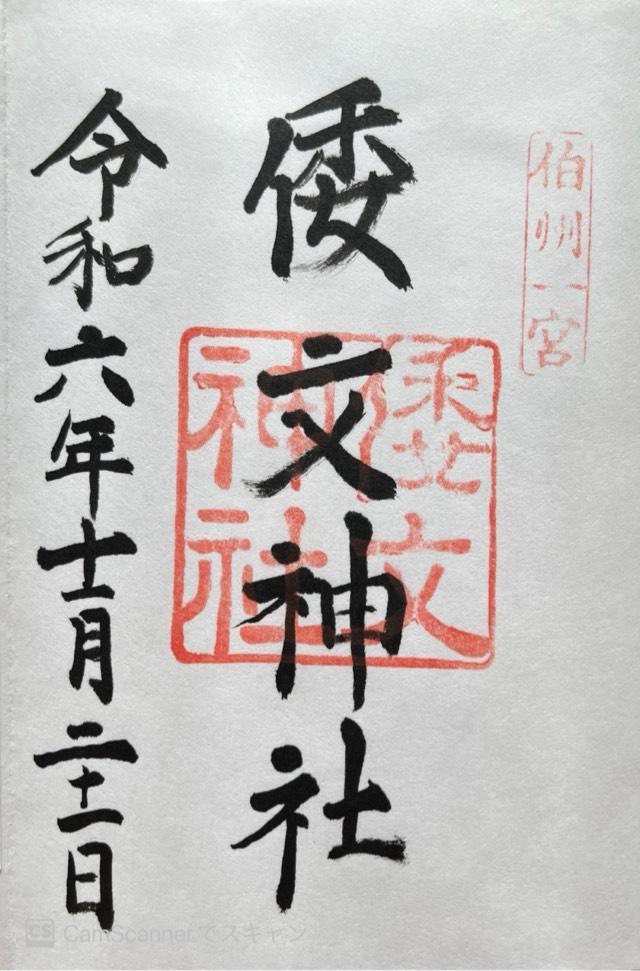 伯州一宮
倭文神社
倭文
神社
令和六年十一月二十一日
CS CamScannerでスキャン